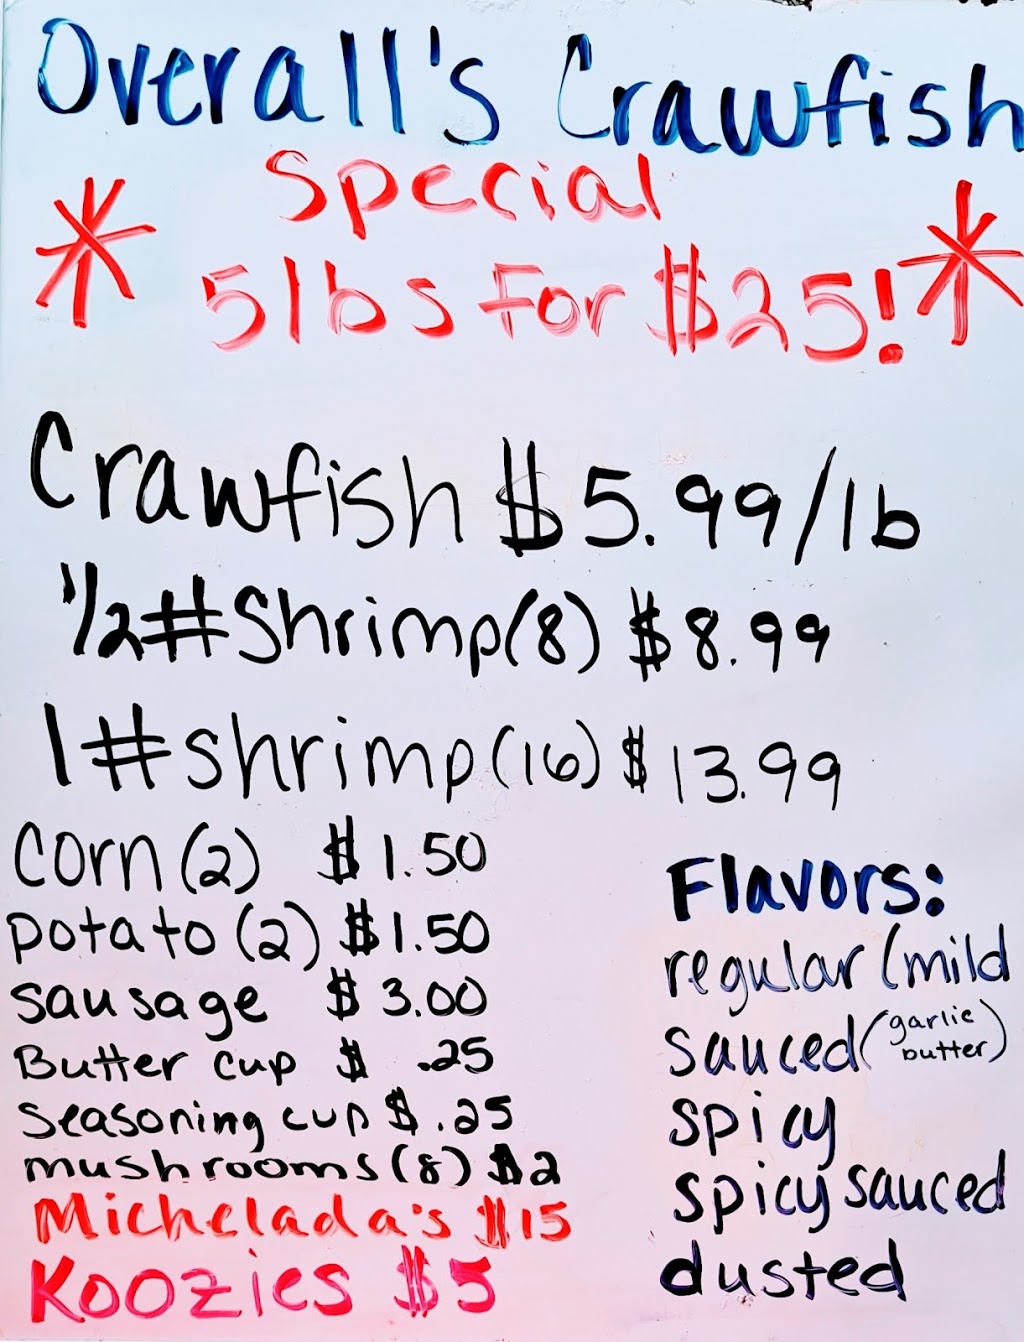 Overall's Crawfish
* Special *
5lbs For $25!
Crawfish $5.99/lb
1/2# Shrimp (8) $8.99
1# shrimp (16) $13.99
corn (2) $1.50
potato (2) $1.50
sausage $3.00
Butter cup $ .25
seasoning cup $ .25
mushrooms (8) $2
Michelada's $15
Koozies $5
Flavors:
regular (mild
sauced (garlic butter)
spicy
spicy sauced
dusted